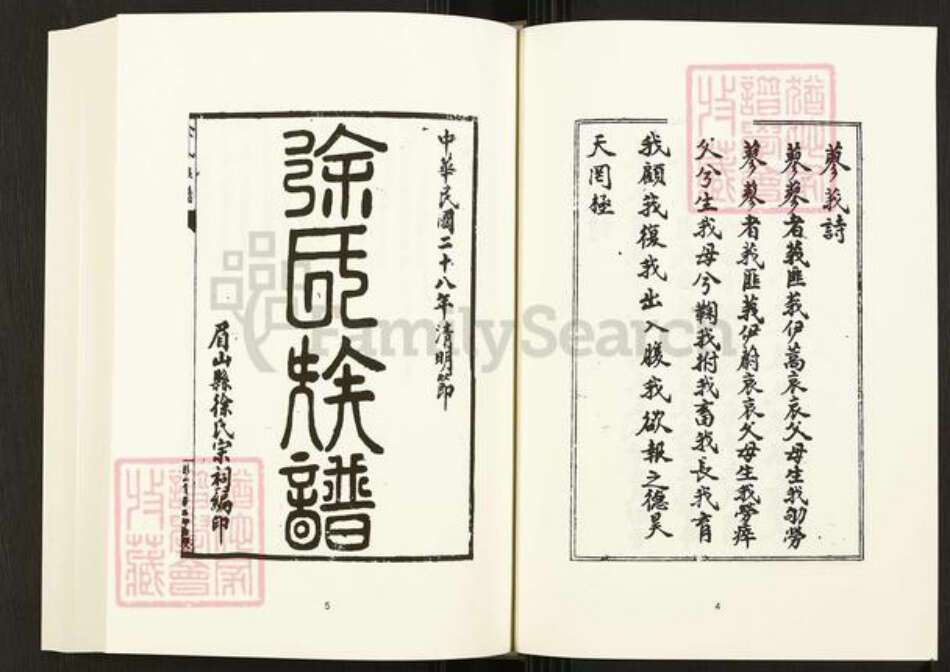 蓼莪詩
蓼蓼者莪匪莪伊蒿哀哀父母生我劬勞
蓼蓼者莪匪莪伊蔚哀哀父母生我勞瘁
父兮生我母兮鞠我拊我畜我長我育
我顧我復我出入腹我欲報之德昊
天罔極
4
中華民國二十八年清明節
徐氏族譜
眉山縣徐氏宗祠編印
5
譜學會
收藏
FamilySearch